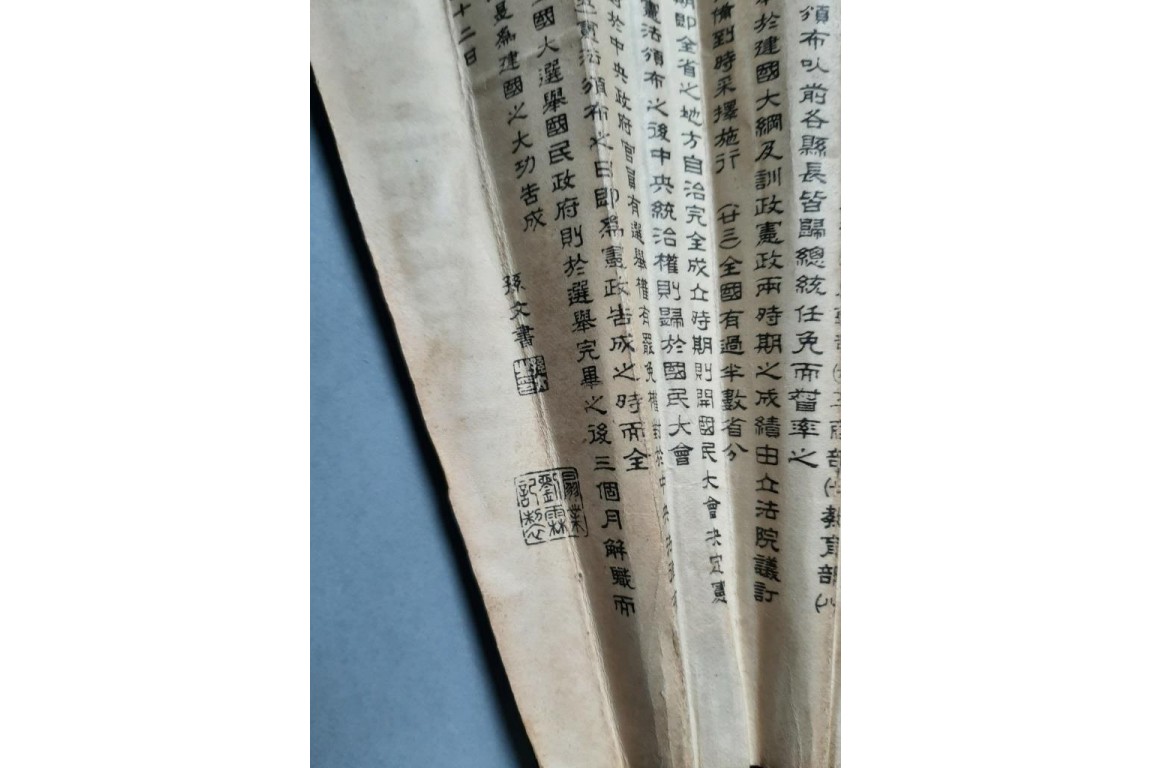 部(七)教育部(八
頒布以前各縣長皆歸總統任免而督率之
於建國大綱及訓政憲政兩時期之成績由立法院議訂
備到時采擇施行 (廿三)全國有過半數省分
期即全省之地方自治完全成立時期則開國民大會決定憲
憲法頒布之後中央統治權則歸於國民大會
於中央政府官員有選舉權有罷免權對於中央
憲法頒布之日即為憲政告成之時而全
國大選舉國民政府則於選舉完畢之後三個月解職而
是為建國之大功告成
十二日
孫文書